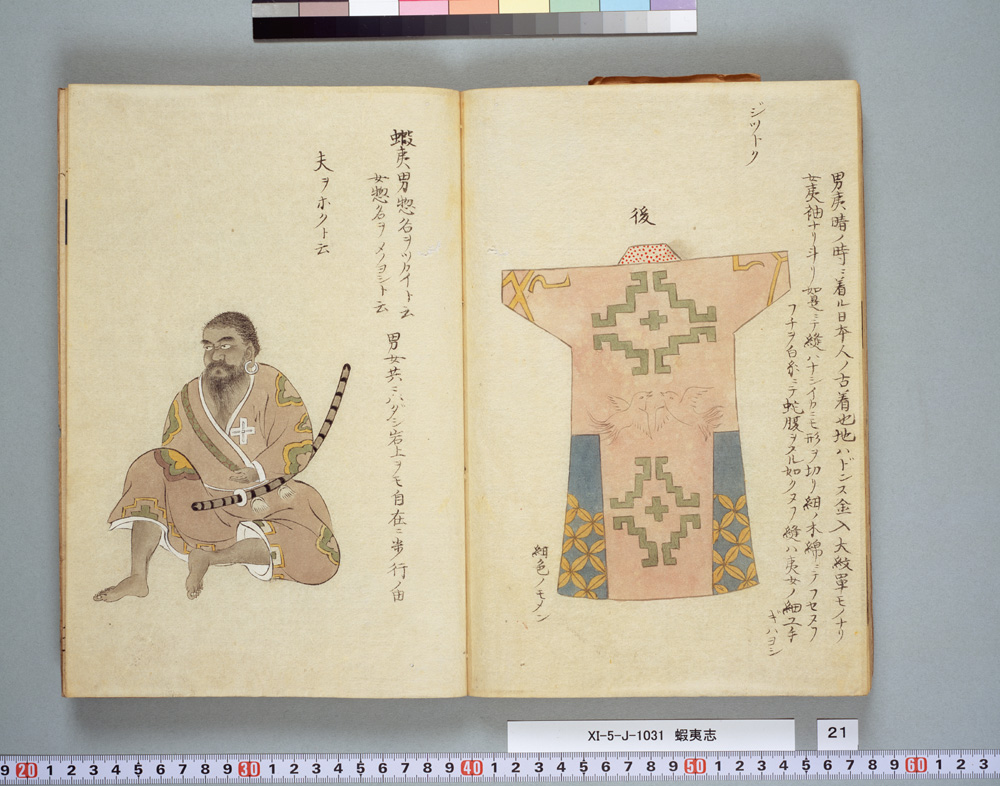 ジツトク
男夷晴ノ時ニ着ル日本人ノ古着也地ハドンス金入大紋單モノナリ
女夷袖ナリ斗リ如是ニテ縫ハナシイカニモ形ヲ切リ紺ノ木綿ニテフセヌフ
フチヲ白糸ニテ蛇腹ヲスル如クヌフ縫ハ夷女ノ細工手
ギハヨシ
後
紺色ノモメン
蝦夷男惣名ヲツカイト云
女惣名ヲメノヨシト云
男女共ニハダシ岩上ヲモ自在ニ歩行ノ由
夫ヲホクト云
XI-5-J-1031 蝦夷志
21
9 20 1 2 3 4 5 6 7 8 9 30 1 2 3 4 5 6 7 8 9 40 1 2 3 4 5 6 7 8 9 50 1 2 3 4 5 6 7 8 9 60 1 2 3 4